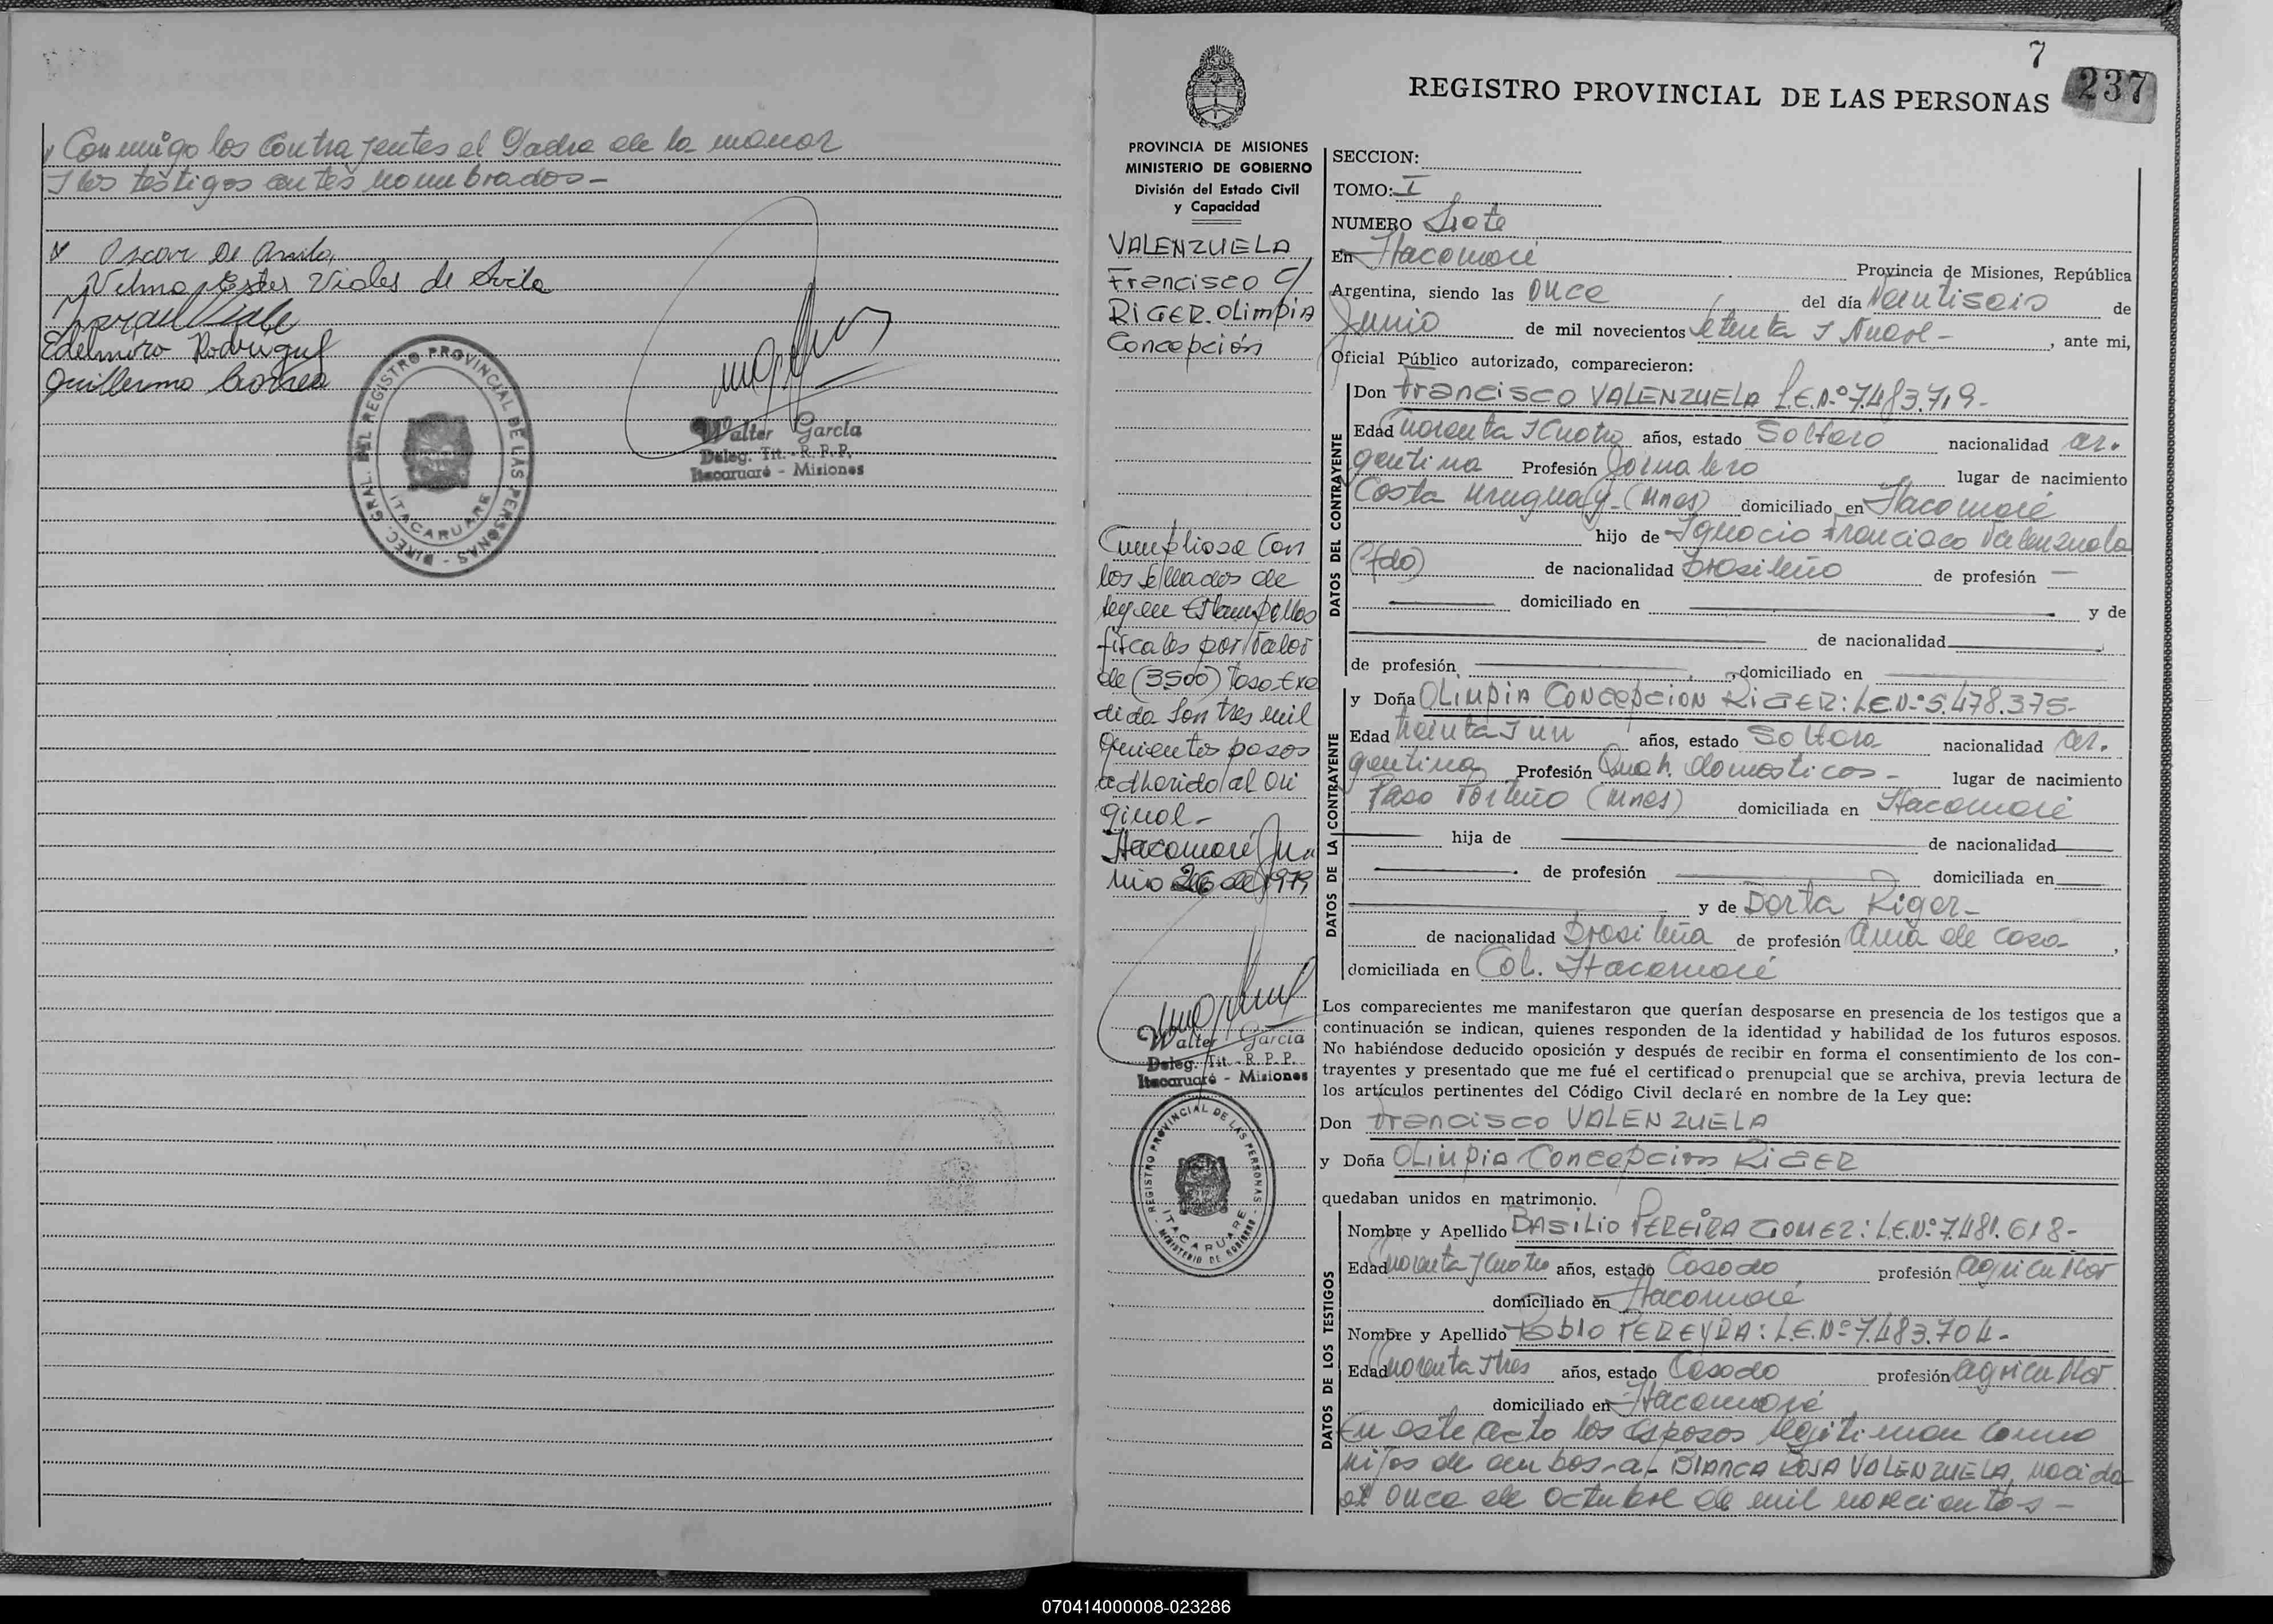 y Conmigo los Contrayentes el Padre de la menor
y los testigos antes nombrados-
Oscar De Avila
Velma Ester Viales de Avila
Edelmiro Rodriguez
Guillermo Correa
DIREC. GRAL. DEL REGISTRO PROVINCIAL DE LAS PERSONAS -
ITACARUARE
Walter García
Deleg. Tit. - R. P. P.
Itacaruaré - Misiones
7
237
REGISTRO PROVINCIAL DE LAS PERSONAS
PROVINCIA DE MISIONES
MINISTERIO DE GOBIERNO
División del Estado Civil
y Capacidad
VALENZUELA
Francisco C/
RIGER. OLimpia
Concepción
Cumpliose Con
los Sellados de
ley en Estampillas
fiscales por valor
de (3500)
dida Son tres mil
quinientos pesos
adherido al Ori
ginal-
Itacaruaré Ju
nio 26 de 1979
Walter García
Deleg. Tit. - R. P. P.
Itacaruaré - Misiones
REGISTRO PROVINCIAL DE LAS PERSONAS -
ITACARUARE
MINISTERIO DE GOBIERNO
SECCION:
TOMO: I
NUMERO Siete
En Itacaruaré Provincia de Misiones, República
Argentina, siendo las once del día Veintiseis de
Junio de mil novecientos setenta y Nueve- , ante mi,
Oficial Público autorizado, comparecieron:
DATOS DEL CONTRAYENTE
Don Francisco VALENZUELA L.E.N.º 7.483.719-
Edad Cuatro años, estado Soltero nacionalidad ar-
gentina Profesión Jornalero lugar de nacimiento
Costa Uruguay-(Mnes) domiciliado en Itacaruaré
hijo de Ignacio Francisco Valenzuela
(fdo) de nacionalidad Brasileño de profesión —
domiciliado en y de
de nacionalidad
de profesión , domiciliado en
DATOS DE LA CONTRAYENTE
y Doña OLIMPIA CONCEPCION RIGER: L.E.N.º 5.478.375-
Edad treinta y un años, estado Soltera nacionalidad ar-
gentina Profesión Queh. domesticos- lugar de nacimiento
Paso Porteño (Mnes) domiciliada en Itacaruaré
hija de de nacionalidad
de profesión domiciliada en
y de Dorta Riger-
de nacionalidad Brasileña de profesión Ama de casa- ,
domiciliada en Col. Itacaruaré
Los comparecientes me manifestaron que querían desposarse en presencia de los testigos que a
continuación se indican, quienes responden de la identidad y habilidad de los futuros esposos.
No habiéndose deducido oposición y después de recibir en forma el consentimiento de los con-
trayentes y presentado que me fué el certificado prenupcial que se archiva, previa lectura de
los artículos pertinentes del Código Civil declaré en nombre de la Ley que:
Don Francisco VALENZUELA
y Doña OLimpia Concepcion RIGER
quedaban unidos en matrimonio.
DATOS DE LOS TESTIGOS
Nombre y Apellido BASILIO PEREIRA GOMEZ: L.E.N.º 7.481.618-
Edad Cuatro años, estado Casado profesión agricultor
domiciliado en Itacaruaré
Nombre y Apellido Pablo PEREYRA: L.E.Nº 7.483.704-
Edad tres años, estado Casado profesión agricultor
domiciliado en Itacaruaré
En este acto los esposos legitiman como
hijos de ambos-a- BLANCA ROSA VALENZUELA, nacida
el once de octubre de mil novecientos-
070414000008-023286